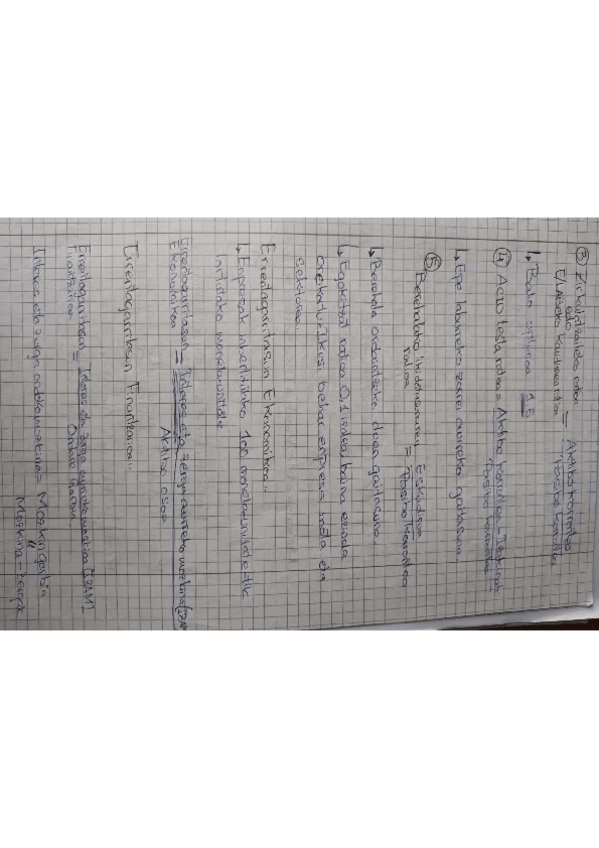 ③ Zirkulatzaileko ratioa edo E/Laburreko kaudimen ratioa = Aktibo korrontea / Pasibo korrontea
↳ Balio optimoa 1,5
④ Acid testa ratioa = Aktibo korrontea - Izakinak / Pasibo korrontea
↳ Epe laburreko zorrei aurreko gaitasuna.
⑤ Berehalako likidotasunaren ratioa = Eskudiroa / Pasibo korrontea
↳ Berehala ordaintzeko duen gaitasuna.
↳ Egokitzat ratioa 0,1 izatea, baina
behar enpresa eta
sektorea
Errentagarritasun Ekonomikoa:
↳ Enpresak inbertitutako 100 monetaunitateetik
lortutako monetaunitate
Errentagarritasun Ekonomikoa = Interes eta zerga aurreko mozkina / Aktibo osoa
Errentagarritasun Finantzarioa:
Errentagarritasun Finantzarioa = Interes eta zerga aurreko mozkina / Ondare Garbia
Interes eta zerga ondoko mozkina = Mozkin garbia
Mozkina - Zergak